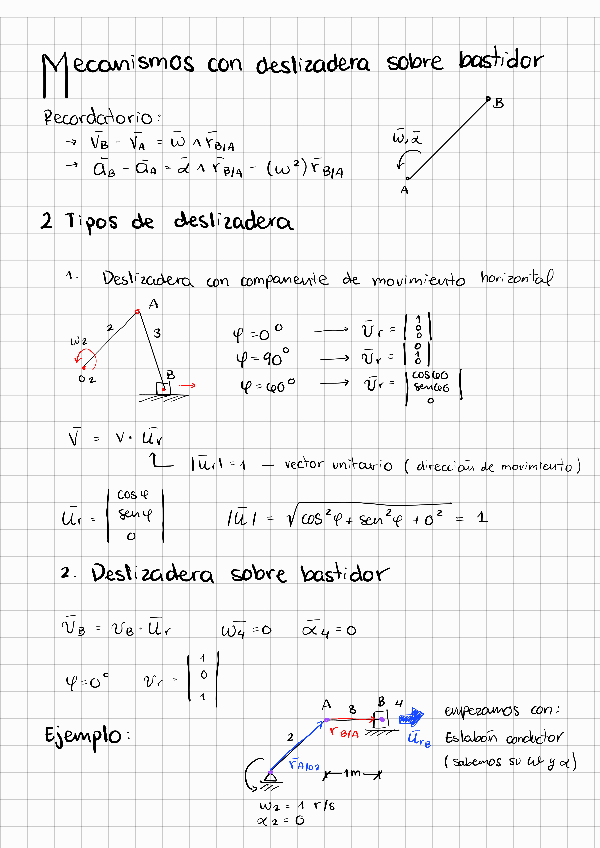 Mecanismos con deslizadera sobre bastidor
Recordatorio:
→ V̄B - V̄A = ω̄ ∧ r̄B/A
→ āB - āA = ᾱ ∧ r̄B/A - (ω²) r̄B/A
ω̄, ᾱ
A
B
2 Tipos de deslizadera
1. Deslizadera con componente de movimiento horizontal
ω2
O2
2
A
3
B
φ=0° → ūr = |1 0 0|
φ=90° → ūr = |0 1 0|
φ=60° → ūr = |cos60 sen60 0|
V̄ = V · ūr
|ūr| = 1 — vector unitario (dirección de movimiento)
ūr = |cosφ senφ 0|
|ū| = √cos²φ + sen²φ + 0² = 1
2. Deslizadera sobre bastidor
V̄B = VB · ūr ω̄4=0 ᾱ4=0
φ=0° ur = |1 0 1|
Ejemplo:
2
A
3
B
4
r̄B/A
r̄A/O2
ūrB
1m
ω2 = 1 r/s
α2 = 0
empezamos con:
Eslabón conductor
(sabemos su ω y α)